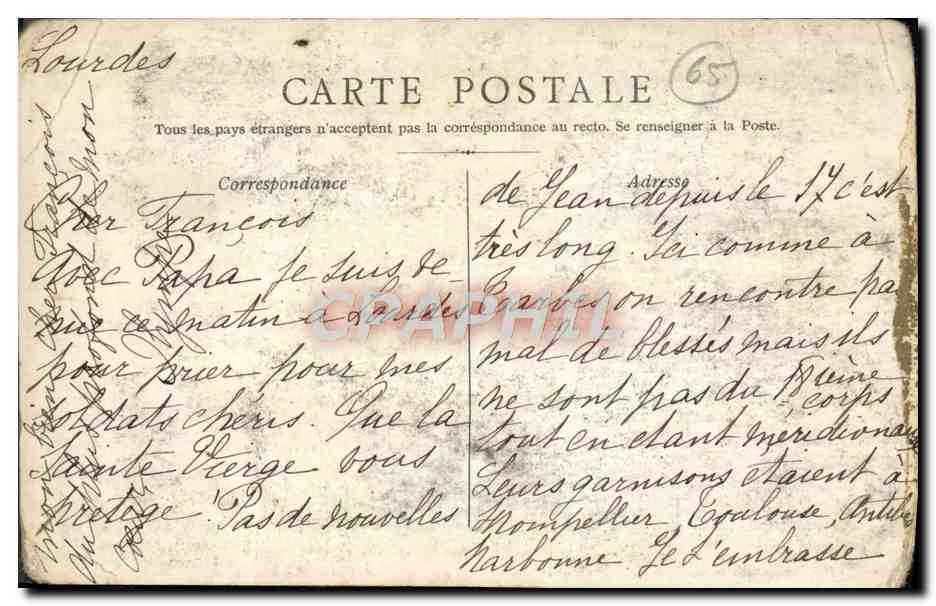 Lourdes
65
CARTE POSTALE
Tous les pays étrangers n'acceptent pas la corréspondance au recto. Se renseigner à la Poste.
Correspondance
Adresse
Cher François
Avec Papa je suis de-
puis ce matin à Lourdes
pour prier pour mes
soldats chéris. Que la
Sainte Vierge vous
protège! Pas de nouvelles
de Jean depuis le 17 c'est
très long. Ici comme à
Tarbes on rencontre pa
mal de blessés mais ils
ne sont pas du ième
corps
tout en étant méridionaux
Leurs garnisons étaient à
Montpellier, Toulouse, Antibes
Narbonne. Je t'embrasse
mon bien cher François
du plus profond de mon
CPAPHIL